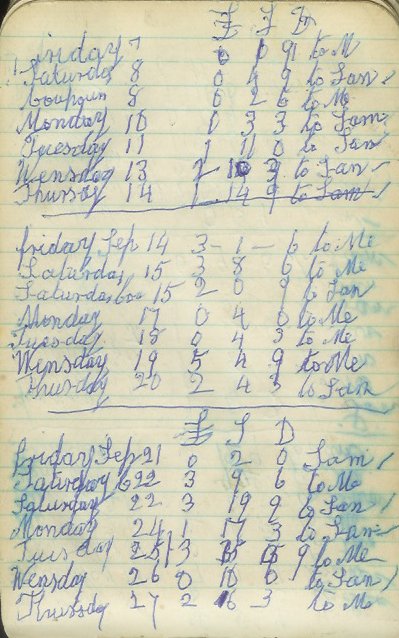 £ S D
friday 7 0 0 9 to M
Saturday 8 0 4 9 to San
8 0 2 6 to Me
Monday 10 1 3 3 to Sam
Tuesday 11 1 11 0 to San
Wensday 13 2 10 3 to San
Thursday 14 1 14 9 to Sam
friday Sep 14 3 - 1 - 6 to Me
Saturday 15 3 8 6 to Me
Saturday 15 2 0 9 to San
Monday 17 0 4 0 to Me
Tuesday 18 0 4 3 to Me
Wensday 19 5 4 9 to Me
Thursday 20 2 4 3 to San
£ S D
friday Sep 21 0 2 0 Sam
Saturday 22 3 9 6 to Me
Saturday 22 3 19 9 to San
Monday 24 1 17 3 to San
Tuesday 25 3 15 9 to Me
Wensday 26 0 10 6 to San
Thursday 27 2 6 3 to M